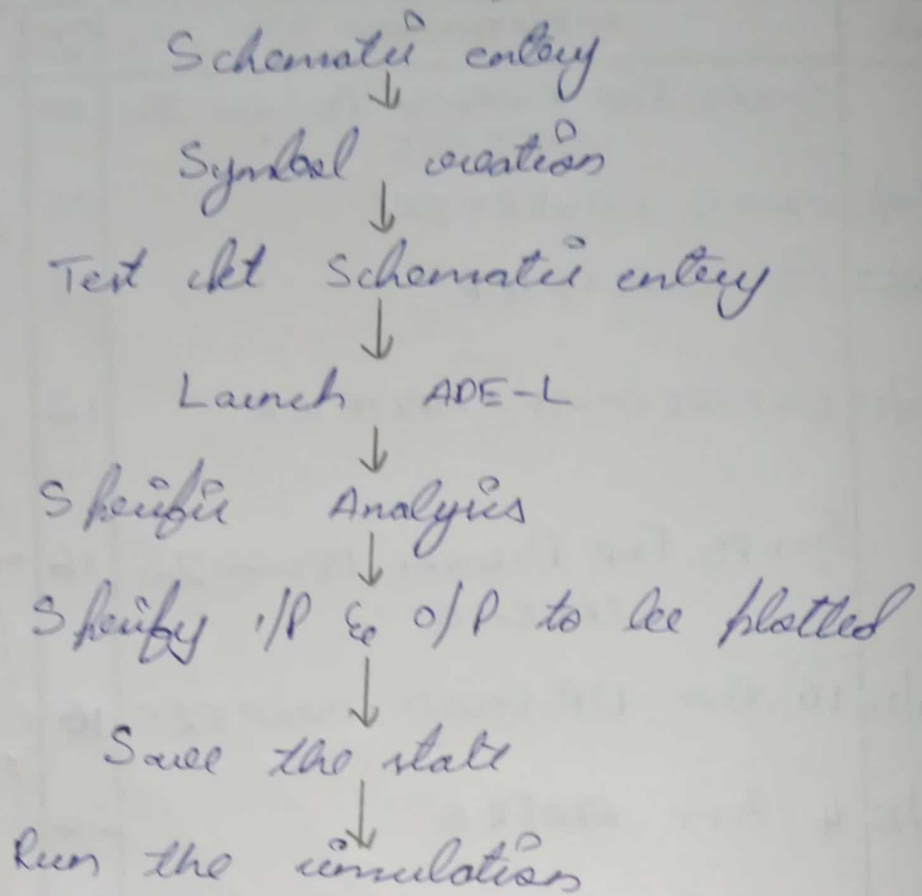 Schematic entery
↓
Symbol creation
↓
Test ckt Schematic entery
↓
Launch ADE-L
↓
Specific Analysis
↓
Specify i/P & o/P to be plotted
↓
Save the state
↓
Run the simulation